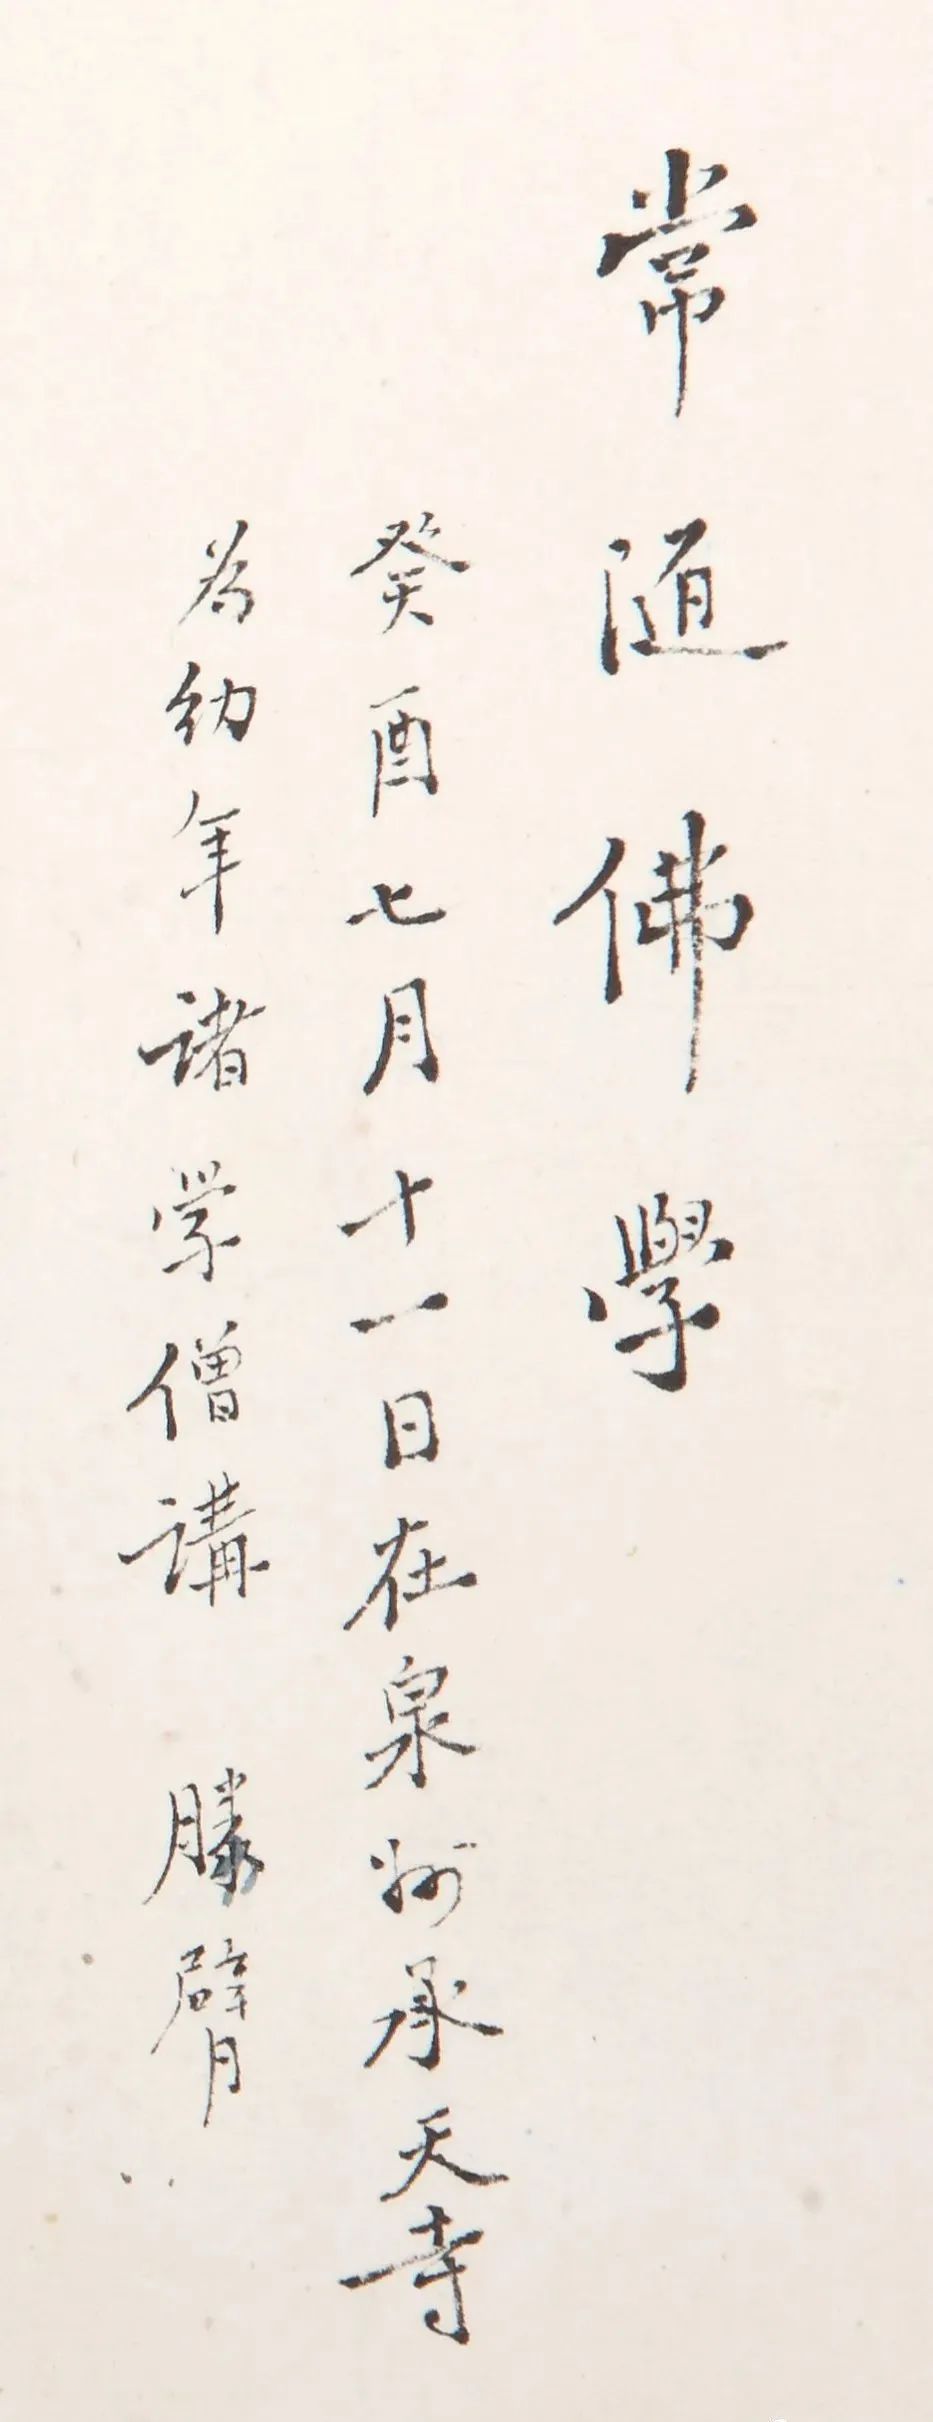 常随佛學
癸酉七月十一日在泉州承天寺
为幼年诸学僧講 勝臂